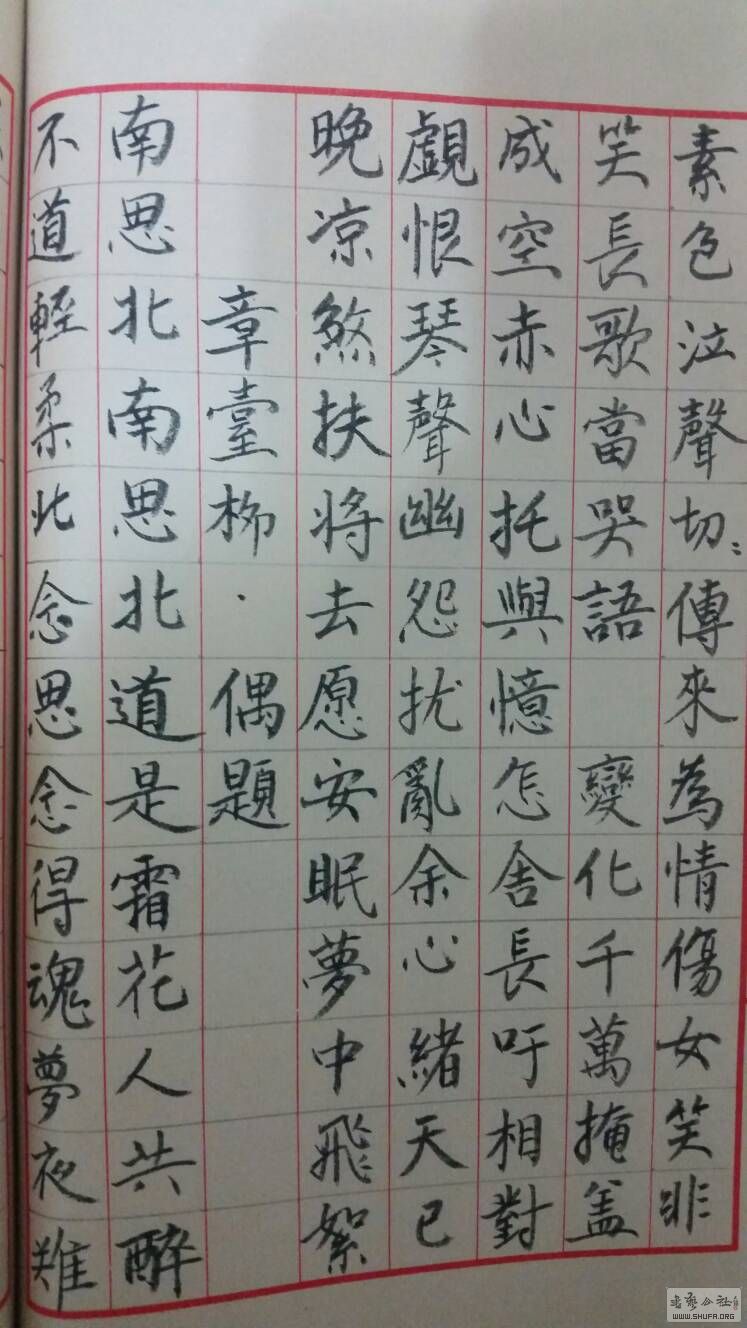 素色泣聲切〻傳來為情傷女笑非
笑長歌當哭語 變化千萬掩盖
成空赤心托與憶怎舍長吁相對
覷恨琴聲幽怨扰亂余心緒天已
晚凉煞扶将去愿安眠夢中飛絮
章臺柳·偶題
南思北南思北道是霜花人共醉
不道輕柔此念思念得魂夢夜難
書藝公社
WWW.SHUFA.ORG